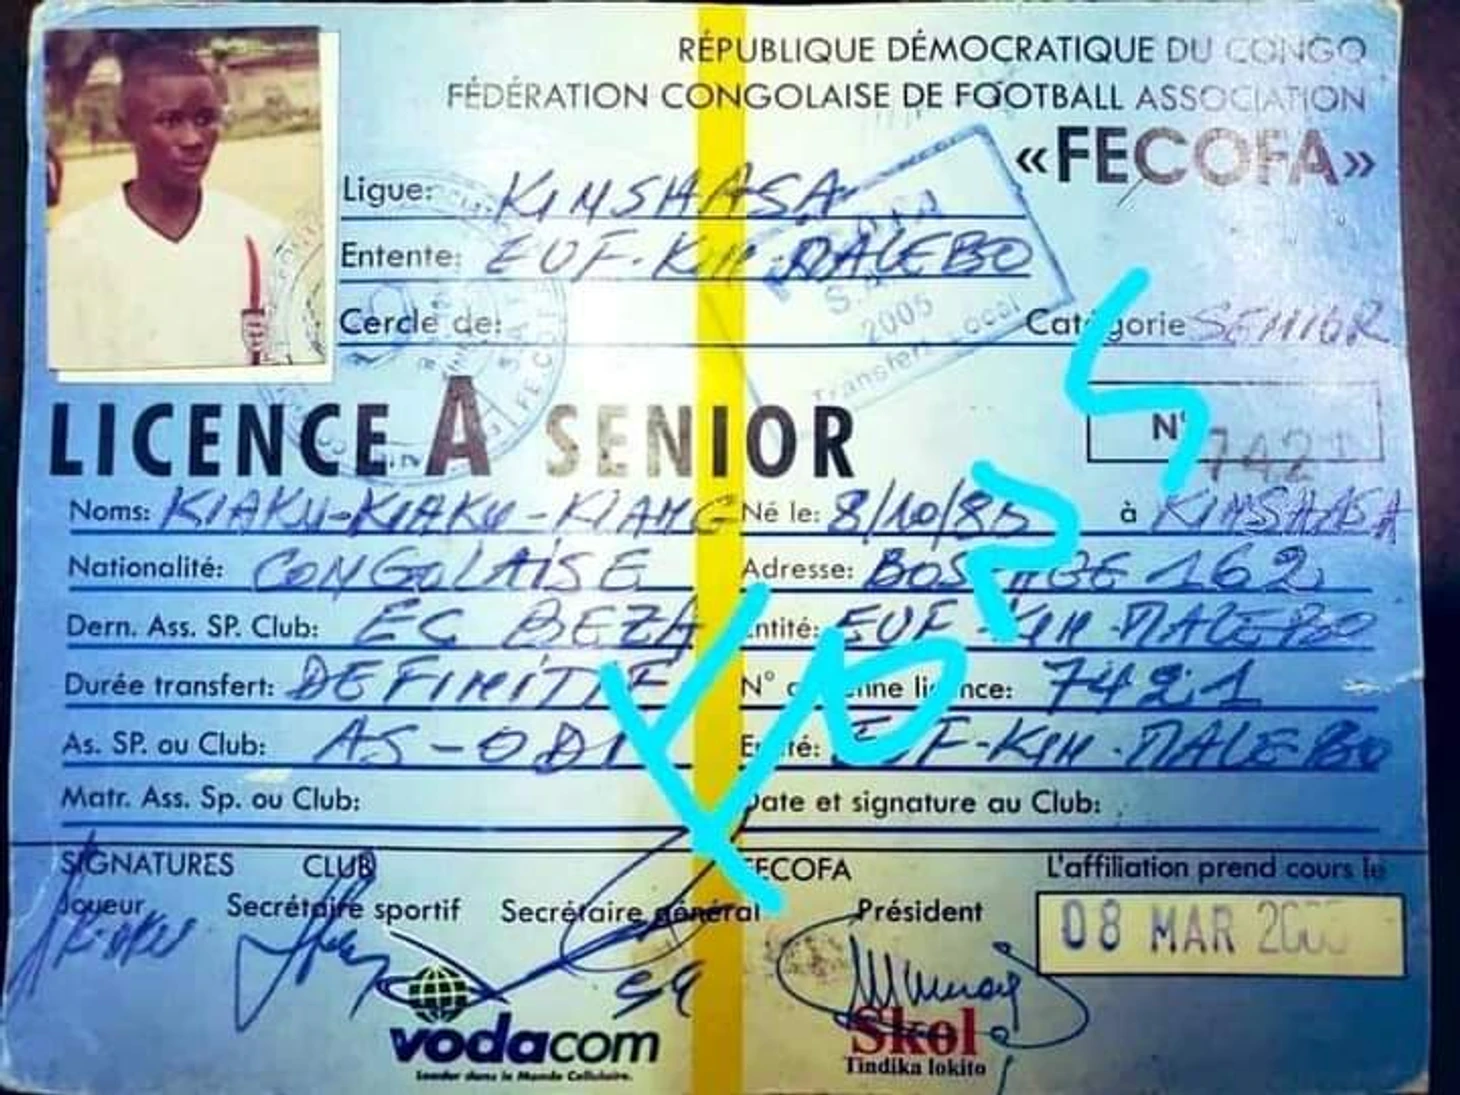 RÉPUBLIQUE DÉMOCRATIQUE DU CONGO
FÉDÉRATION CONGOLAISE DE FOOTBALL ASSOCIATION
«FECOFA»
Ligue: KINSHASA
Entente: EUF-KIN-MALEBO
Cercle de:
Catégorie SENIOR
S.A.
2005
Transfert Local
LICENCE A SENIOR
N° 7421
Noms: KIAKU-KIAKU-KIANG Né le: 8/10/85 à KINSHASA
Nationalité: CONGOLAISE Adresse: 162
Dern. Ass. SP. Club: EC BEZA Entité: EUF-KIN-MALEBO
Durée transfert: DEFINITIF N° licence: 7421
As. SP. ou Club: AS-ODI Entité: EUF-KIN-MALEBO
Matr. Ass. Sp. ou Club: Date et signature au Club:
SIGNATURES CLUB FECOFA L'affiliation prend cours le
Joueur Secrétaire sportif Secrétaire général Président
08 MAR
vodacom
Leader dans le Monde Cellulaire.
Skol
Tindika lokito